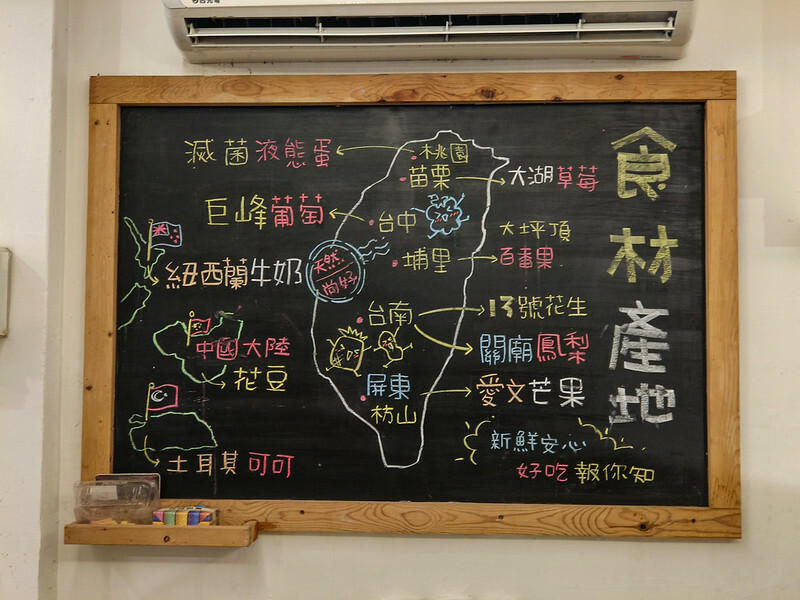 食材產地
滅菌液態蛋
桃園
苗栗
大湖草莓
巨峰葡萄
台中
大坪頂
百香果
埔里
天然
尚好
紐西蘭牛奶
台南
13號花生
關廟鳳梨
中國大陸
花豆
屏東
枋山
愛文芒果
土耳其可可
新鮮安心
好吃報你知